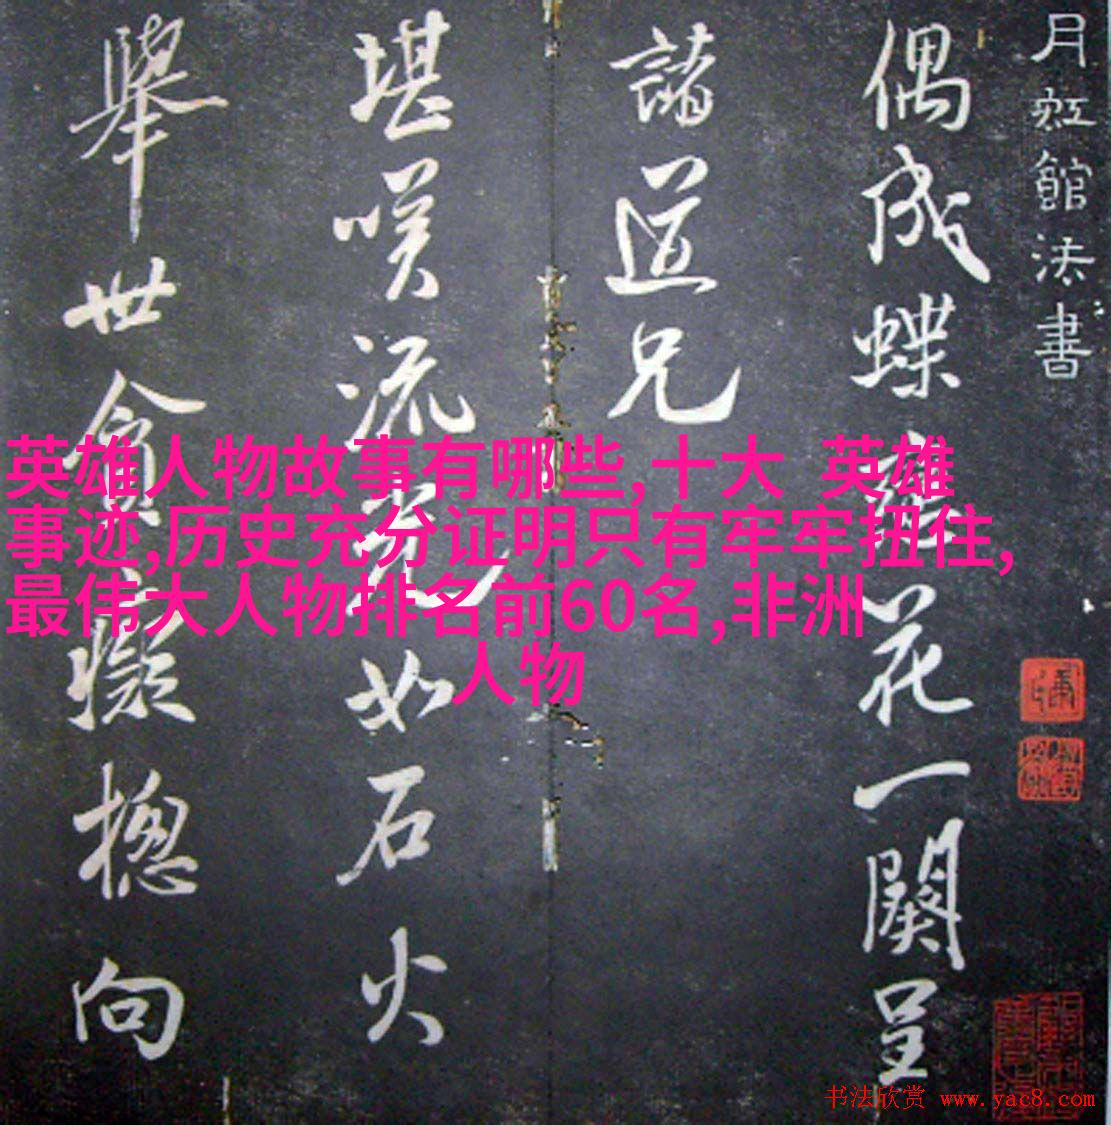 月虹館法書
偶成蝶戀花一闋呈
諸道兄
堪咲流光如石火
舉世貪癡摠向
英雄人物故事有哪些,十大 英雄
事迹,历史充分证明只有牢牢扭住,
最伟大人物排名前60名,非洲
人物
书法欣赏 www.yac8.com